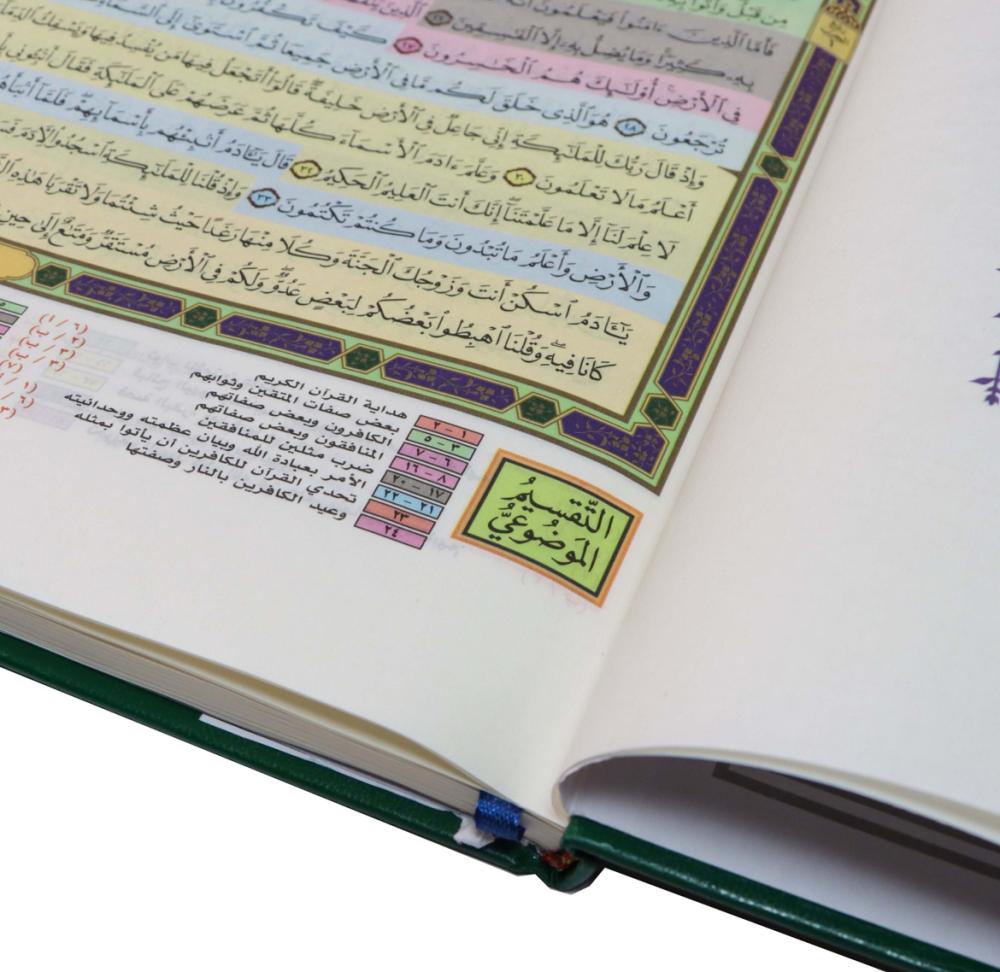 مِن قَبْلُ وَأُتُوا۟
فَأَمَّا ٱلَّذِينَ ءَامَنُوا۟ فَيَعْلَمُونَ أَنَّهُ
بِهِۦ كَثِيرًا وَمَا يُضِلُّ بِهِۦٓ إِلَّا ٱلْفَٰسِقِينَ ٢٦ ٱلَّذِينَ
فِى ٱلْأَرْضِ أُو۟لَٰٓئِكَ هُمُ ٱلْخَٰسِرُونَ ٢٧ كَيْفَ تَكْفُرُونَ
تُرْجَعُونَ ٢٨ هُوَ ٱلَّذِى خَلَقَ لَكُم مَّا فِى ٱلْأَرْضِ جَمِيعًا ثُمَّ ٱسْتَوَىٰٓ إِلَى
وَإِذْ قَالَ رَبُّكَ لِلْمَلَٰٓئِكَةِ إِنِّى جَاعِلٌ فِى ٱلْأَرْضِ خَلِيفَةً قَالُوٓا۟ أَتَجْعَلُ فِيهَا مَن يُفْسِدُ فِيهَا وَيَسْفِكُ
أَعْلَمُ مَا لَا تَعْلَمُونَ ٣٠ وَعَلَّمَ ءَادَمَ ٱلْأَسْمَآءَ كُلَّهَا ثُمَّ عَرَضَهُمْ عَلَى ٱلْمَلَٰٓئِكَةِ فَقَالَ أَنۢبِـُٔونِى
لَا عِلْمَ لَنَآ إِلَّا مَا عَلَّمْتَنَآ إِنَّكَ أَنتَ ٱلْعَلِيمُ ٱلْحَكِيمُ ٣٢ قَالَ يَٰٓـَٔادَمُ أَنۢبِئْهُم بِأَسْمَآئِهِمْ فَلَمَّآ
وَٱلْأَرْضِ وَأَعْلَمُ مَا تُبْدُونَ وَمَا كُنتُمْ تَكْتُمُونَ ٣٣ وَإِذْ قُلْنَا لِلْمَلَٰٓئِكَةِ ٱسْجُدُوا۟ لِـَٔادَمَ
يَٰٓـَٔادَمُ ٱسْكُنْ أَنتَ وَزَوْجُكَ ٱلْجَنَّةَ وَكُلَا مِنْهَا رَغَدًا حَيْثُ شِئْتُمَا وَلَا تَقْرَبَا هَٰذِهِ
كَانَا فِيهِ وَقُلْنَا ٱهْبِطُوا۟ بَعْضُكُمْ لِبَعْضٍ عَدُوٌّ وَلَكُمْ فِى ٱلْأَرْضِ مُسْتَقَرٌّ وَمَتَٰعٌ إِلَىٰ حِينٍ
التَّقسِيمُ
المَوضُوعيُّ
١ - ٢ هداية القرآن الكريم
٣ - ٥ بعض صفات المتقين وثوابهم
٦ - ٧ الكافرون وبعض صفاتهم
٨ - ١٦ المنافقون وبعض صفاتهم
١٧ - ٢٠ ضرب مثلين للمنافقين
٢١ - ٢٢ الأمر بعبادة الله وبيان عظمته ووحدانيته
٢٣ تحدي القرآن للكافرين أن يأتوا بمثله
٢٤ وعيد الكافرين بالنار وصفتها